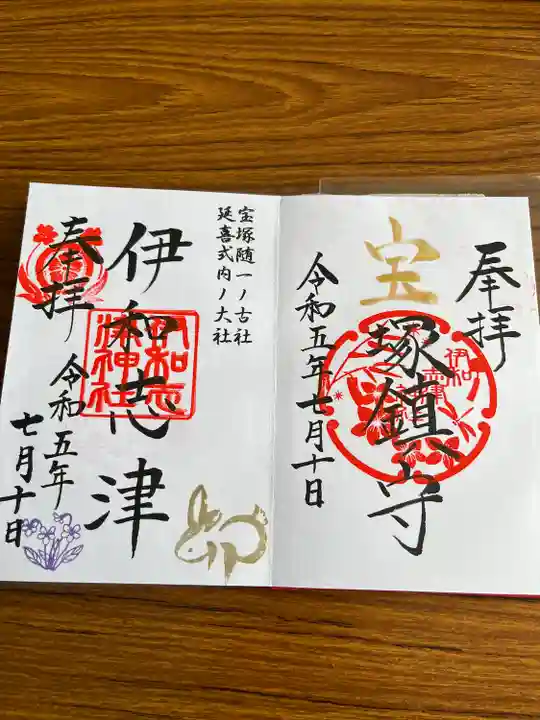 奉拝
宝塚鎮守
伊和志津
令和五年七月十日
宝塚随一ノ古社
延喜式内ノ大社
伊和志津
伊和志
津神社
奉拝
令和五年
七月十日
卯